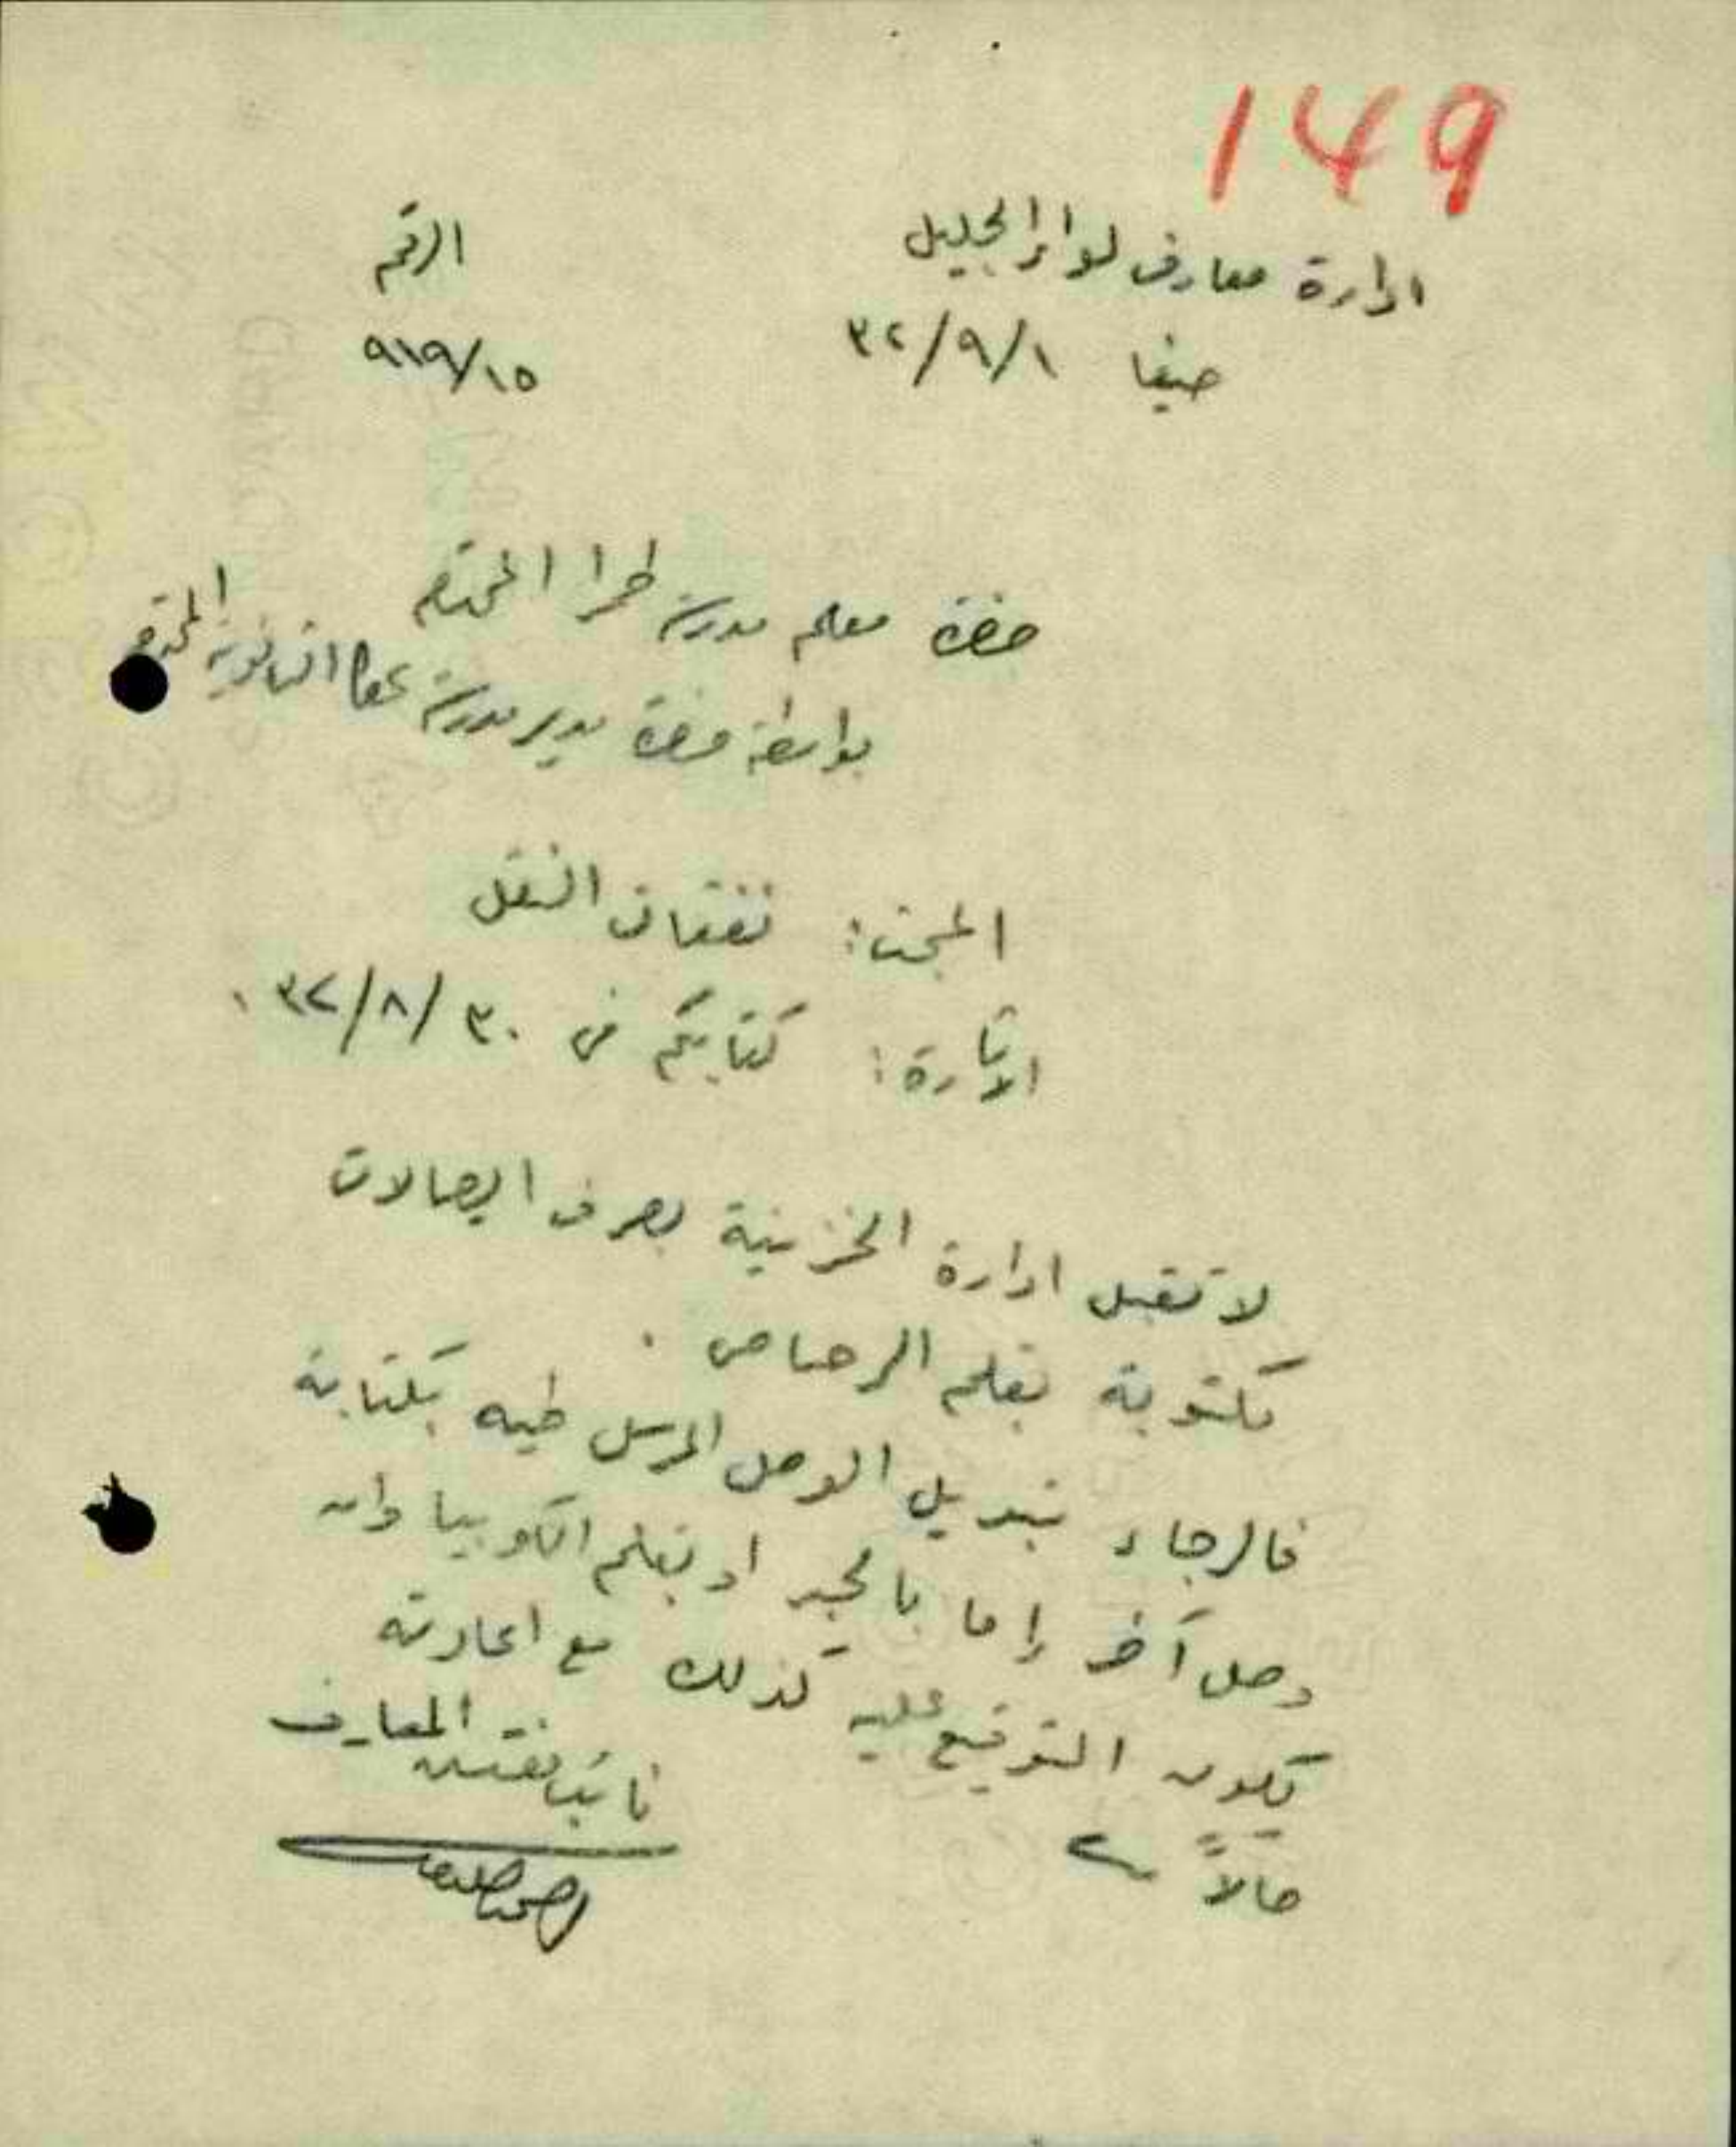 149
ادارة معارف لواء الجليل
الرقم
حيفا ٣٢/٩/١
٩١٩/١٥
حضرة معلم مدرسة طمرا المحترم
بواسطة حضرة مدير مدرسة عكا الثانوية المحترم
المبحث: نفقات النقل
الاشارة: كتابكم في ٣٢/٨/٣٠.
لا تقبل ادارة الخزينة بصرف ايصالات
مكتوبة بقلم الرصاص.
فالرجاء تبديل الوصل المرسل طيه بكتابة
وصل آخر إما بالحبر او بقلم الكوبيا وان
يكون التوقيع عليه كذلك مع اعادته
حالاً
نائب مفتش المعارف